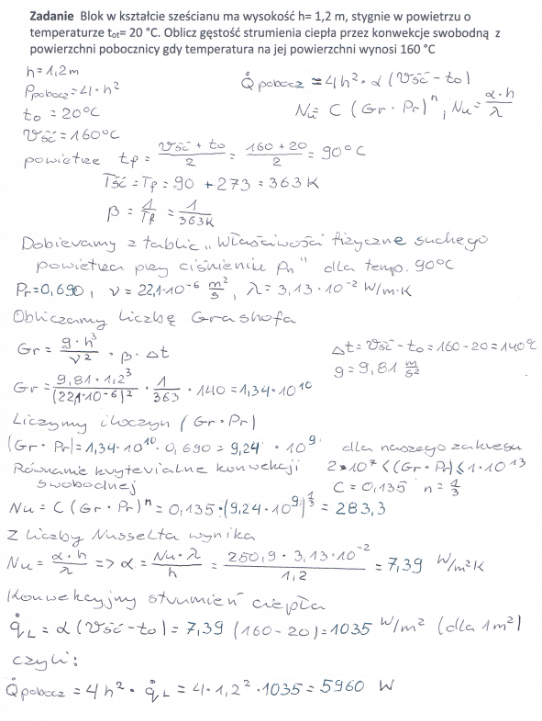 Zadanie Blok w kształcie sześcianu ma wysokość h= 1,2 m, stygnie w powietrzu o
temperaturze tot= 20 °C. Oblicz gęstość strumienia ciepła przez konwekcje swobodną z
powierzchni pobocznicy gdy temperatura na jej powierzchni wynosi 160 °C
h=1,2m
Q̇pobocz = 4h²·α(ϑść - to)
Ppobocz=4·h²
to = 20°C
Nu = C (Gr·Pr)ⁿ, Nu = α·h/λ
ϑść = 160°C
powietrze tp = (ϑść + to)/2 = (160+20)/2 = 90°C
Tść = Tp = 90 + 273 = 363 K
β = 1/Tp = 1/363K
Dobieramy z tablic „Właściwości fizyczne suchego
powietrza przy ciśnieniu pn" dla temp. 90°C
Pr=0,690, ν = 22,1·10⁻⁶ m²/s, λ = 3,13·10⁻² W/m·K
Obliczamy liczbę Grashofa
Gr = g·h³/ν² · β · Δt
Δt = ϑść - to = 160-20 = 140°C
g = 9,81 m/s²
Gr = 9,81·1,2³/(22,1·10⁻⁶)² · 1/363 · 140 = 1,34·10¹⁰
Liczymy iloczyn (Gr·Pr)
(Gr·Pr) = 1,34·10¹⁰·0,690 = 9,24·10⁹ dla naszego zakresu
Równanie kryterialne konwekcji 2·10⁷<(Gr·Pr)≤1·10¹³
swobodnej C = 0,135 n = 1/3
Nu = C (Gr·Pr)ⁿ = 0,135·(9,24·10⁹)^1/3 = 283,3
Z liczby Nusselta wynika
Nu = α·h/λ => α = Nu·λ/h = 280,9·3,13·10⁻²/1,2 = 7,39 W/m²K
Konwekcyjny strumień ciepła
q̇L = α(ϑść - to) = 7,39 (160-20) = 1035 W/m² (dla 1m²)
czyli:
Q̇pobocz = 4h²·q̇L = 4·1,2²·1035 = 5960 W